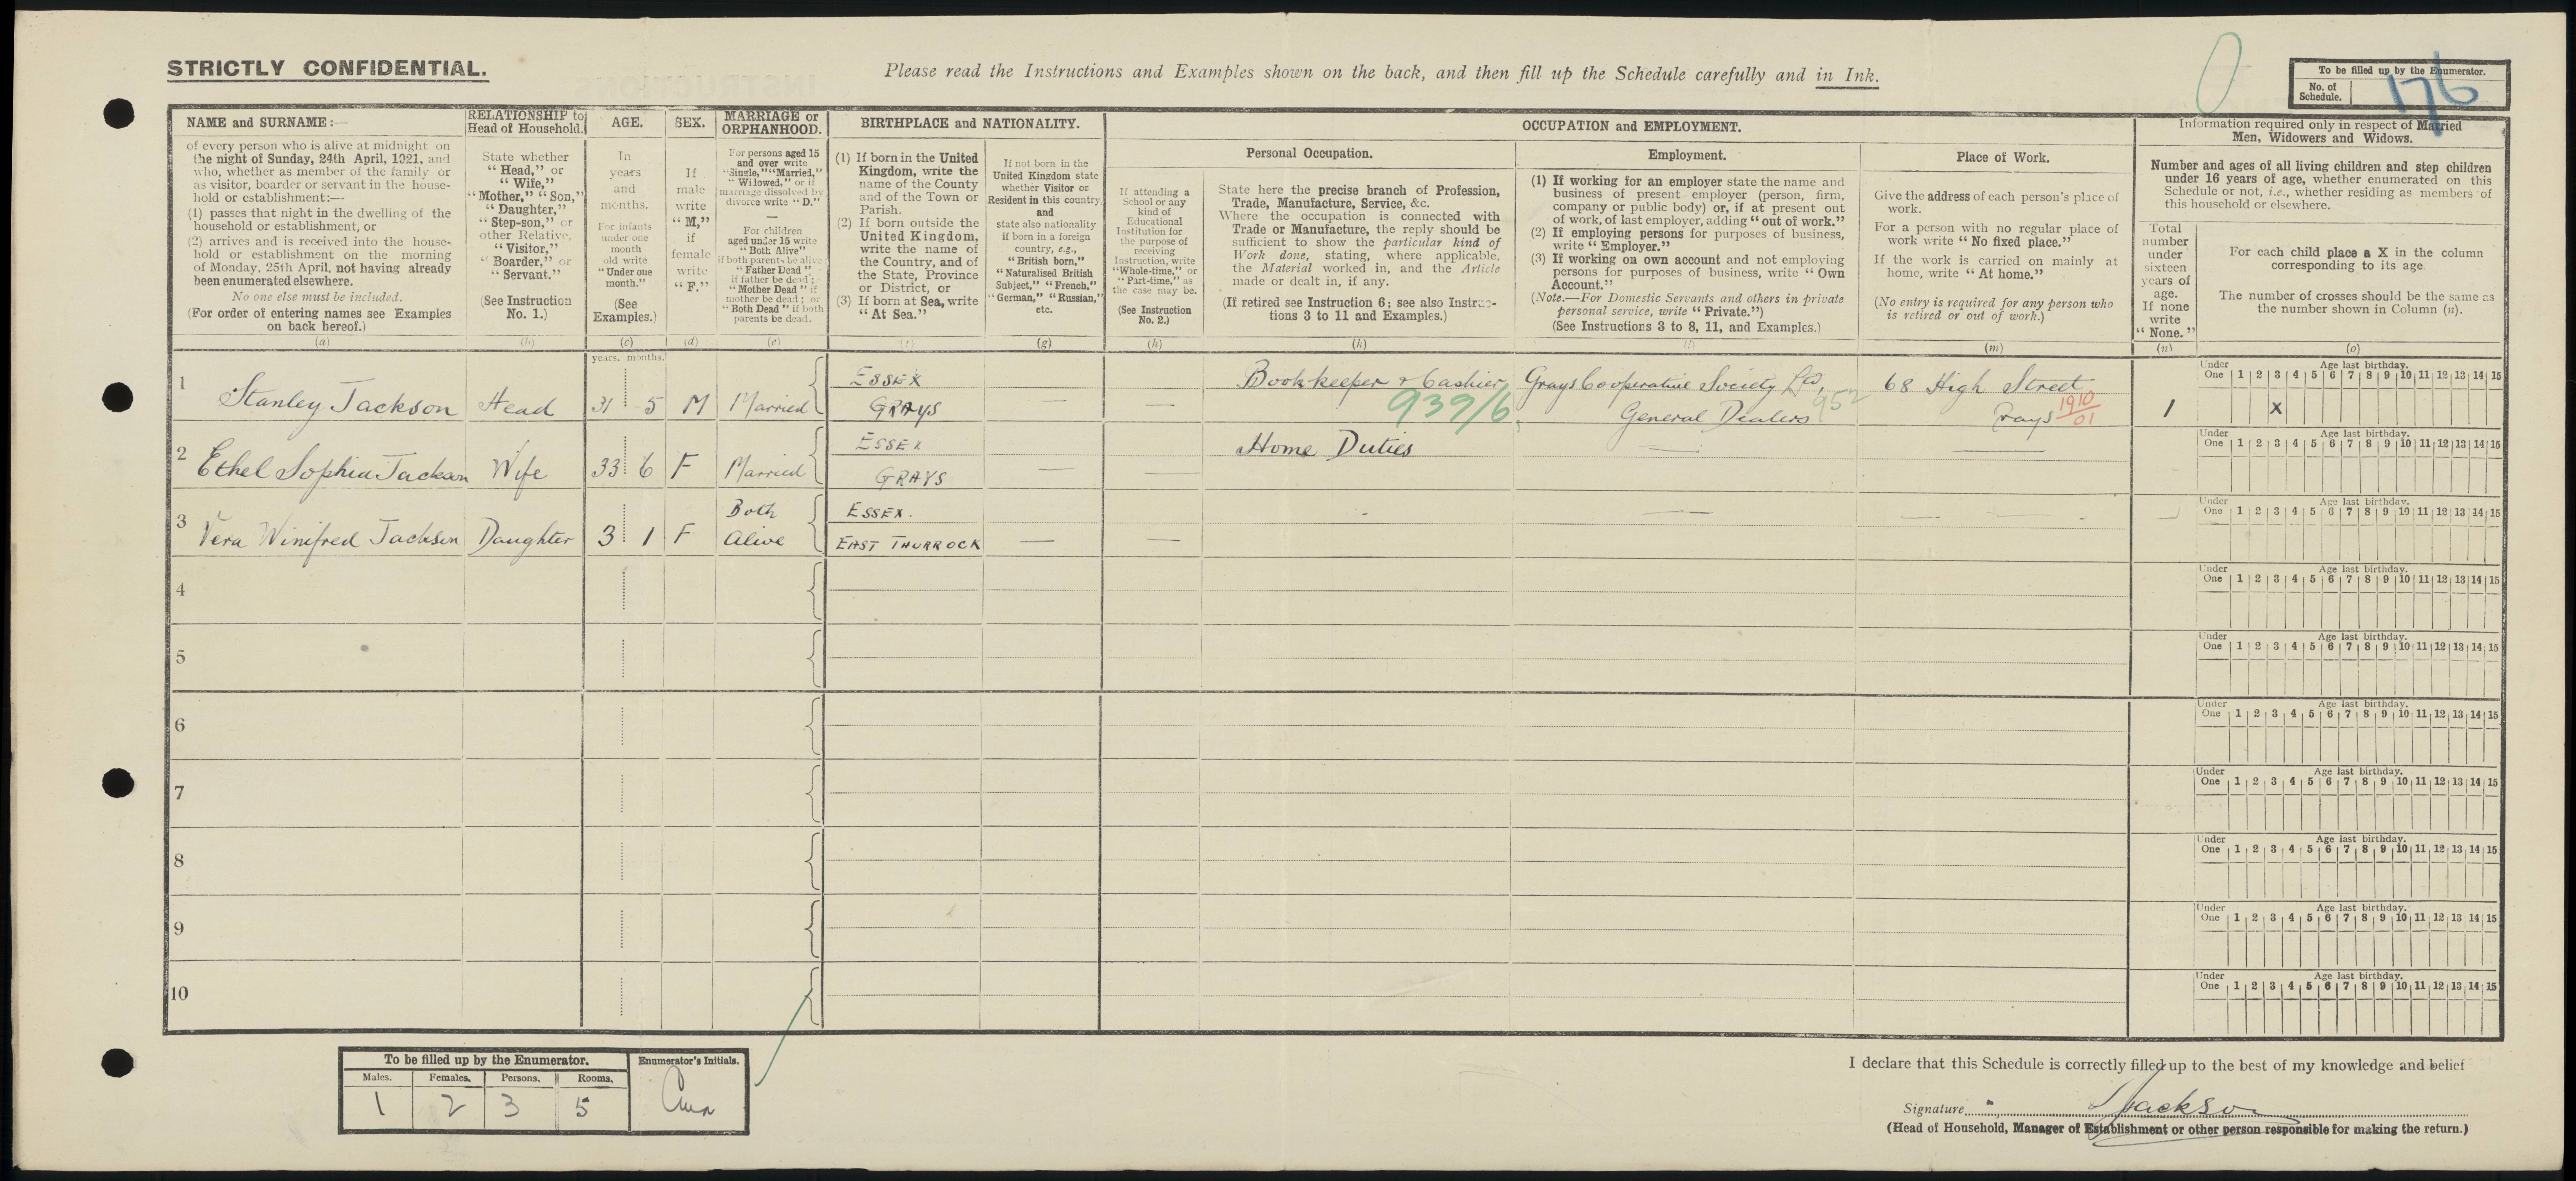 STRICTLY CONFIDENTIAL.
Please read the Instructions and Examples shown on the back, and then fill up the Schedule carefully and in Ink.
To be filled up by the Enumerator.
No. of Schedule.
176
NAME and SURNAME:—
of every person who is alive at midnight on
the night of Sunday, 24th April, 1921, and
who, whether as member of the family or
as visitor, boarder or servant in the house-
hold or establishment:—
(1) passes that night in the dwelling of the
household or establishment, or
(2) arrives and is received into the house-
hold or establishment on the morning
of Monday, 25th April, not having already
been enumerated elsewhere.
No one else must be included.
(For order of entering names see Examples
on back hereof.)
(a)
RELATIONSHIP to
Head of Household.
State whether
"Head," or
"Wife,"
"Mother," "Son,"
"Daughter,"
"Step-son," or
other Relative,
"Visitor,"
"Boarder," or
"Servant."
(See Instruction
No. 1.)
(b)
AGE.
In
years
and
months.
For infants
under one
month
old write
"Under one
month."
(See
Examples.)
(c)
SEX.
If
male
write
"M,"
if
female
write
"F."
(d)
MARRIAGE or
ORPHANHOOD.
For persons aged 15
and over write
"Single," "Married,"
"Widowed," or if
marriage dissolved by
divorce write "D."
—
For children
aged under 15 write
"Both Alive"
if both parents be alive;
"Father Dead"
if father be dead;
"Mother Dead" if
mother be dead; or
"Both Dead" if both
parents be dead.
(e)
BIRTHPLACE and NATIONALITY.
(1) If born in the United
Kingdom, write the
name of the County
and of the Town or
Parish.
(2) If born outside the
United Kingdom,
write the name of
the Country, and of
the State, Province
or District, or
(3) If born at Sea, write
"At Sea."
(f)
If not born in the
United Kingdom state
whether Visitor or
Resident in this country,
and
state also nationality
if born in a foreign
country, e.g.,
"British born,"
"Naturalised British
Subject," "French,"
"German," "Russian,"
etc.
(g)
OCCUPATION and EMPLOYMENT.
If attending a
School or any
kind of
Educational
Institution for
the purpose of
receiving
Instruction, write
"Whole-time," or
"Part-time," as
the case may be.
(See Instruction
No. 2.)
(h)
Personal Occupation.
State here the precise branch of Profession,
Trade, Manufacture, Service, &c.
Where the occupation is connected with
Trade or Manufacture, the reply should be
sufficient to show the particular kind of
Work done, stating, where applicable,
the Material worked in, and the Article
made or dealt in, if any.
(If retired see Instruction 6; see also Instruc-
tions 3 to 11 and Examples.)
(k)
Employment.
(1) If working for an employer state the name and
business of present employer (person, firm,
company or public body) or, if at present out
of work, of last employer, adding "out of work."
(2) If employing persons for purposes of business,
write "Employer."
(3) If working on own account and not employing
persons for purposes of business, write "Own
Account."
(Note.—For Domestic Servants and others in private
personal service, write "Private.")
(See Instructions 3 to 8, 11, and Examples.)
(l)
Place of Work.
Give the address of each person's place of
work.
For a person with no regular place of
work write "No fixed place."
If the work is carried on mainly at
home, write "At home."
(No entry is required for any person who
is retired or out of work.)
(m)
Information required only in respect of Married
Men, Widowers and Widows.
Number and ages of all living children and step children
under 16 years of age, whether enumerated on this
Schedule or not, i.e., whether residing as members of
this household or elsewhere.
Total
number
under
sixteen
years of
age.
If none
write
"None."
(n)
For each child place a X in the column
corresponding to its age
The number of crosses should be the same as
the number shown in Column (n).
(o)
years. months.
Under One Age last birthday. 1 2 3 4 5 6 7 8 9 10 11 12 13 14 15
1 Stanley Jackson Head 31 5 M Married ESSEX GRAYS — — Bookkeeper & Cashier 939/6 Grays Cooperative Society Ltd, General Dealers 952 68 High Street Grays 1910/01 1 X
Under One Age last birthday. 1 2 3 4 5 6 7 8 9 10 11 12 13 14 15
2 Ethel Sophia Jackson Wife 33 6 F Married ESSEX GRAYS — — Home Duties — —
Under One Age last birthday. 1 2 3 4 5 6 7 8 9 10 11 12 13 14 15
3 Vera Winifred Jackson Daughter 3 1 F Both Alive ESSEX. EAST THURROCK — — - — — —
Under One Age last birthday. 1 2 3 4 5 6 7 8 9 10 11 12 13 14 15
4
Under One Age last birthday. 1 2 3 4 5 6 7 8 9 10 11 12 13 14 15
5
Under One Age last birthday. 1 2 3 4 5 6 7 8 9 10 11 12 13 14 15
6
Under One Age last birthday. 1 2 3 4 5 6 7 8 9 10 11 12 13 14 15
7
Under One Age last birthday. 1 2 3 4 5 6 7 8 9 10 11 12 13 14 15
8
Under One Age last birthday. 1 2 3 4 5 6 7 8 9 10 11 12 13 14 15
9
Under One Age last birthday. 1 2 3 4 5 6 7 8 9 10 11 12 13 14 15
10
To be filled up by the Enumerator.
Males. Females. Persons. Rooms.
1 2 3 5
Enumerator's Initials.
I declare that this Schedule is correctly filled up to the best of my knowledge and belief
Signature SJackson
(Head of Household, Manager of Establishment or other person responsible for making the return.)